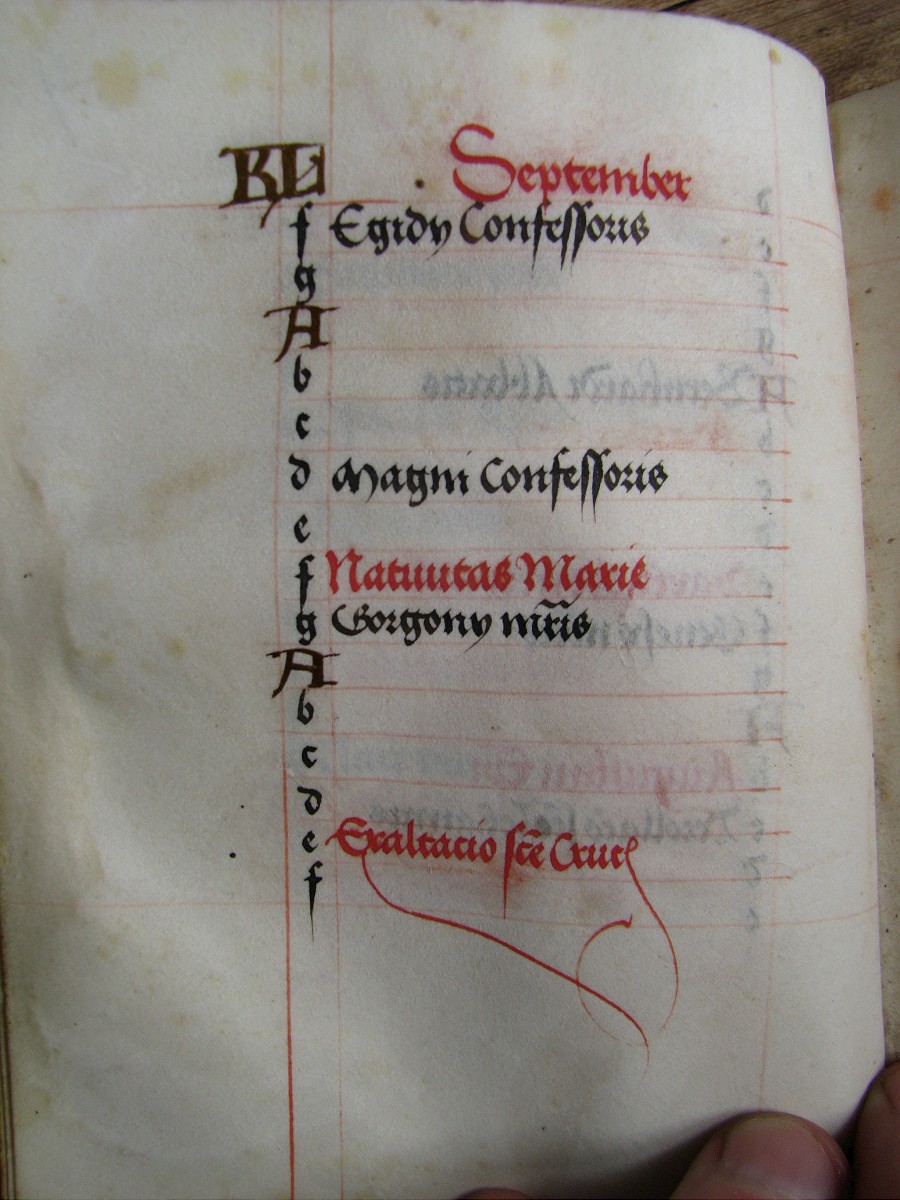 KL September
f Egidy Confessoris
g
A
b
c
d Magni Confessoris
e
f Natiuitas Marie
g Gorgony mr̄is
A
b
c
d
e Exaltacio sc̄e Crucis
f